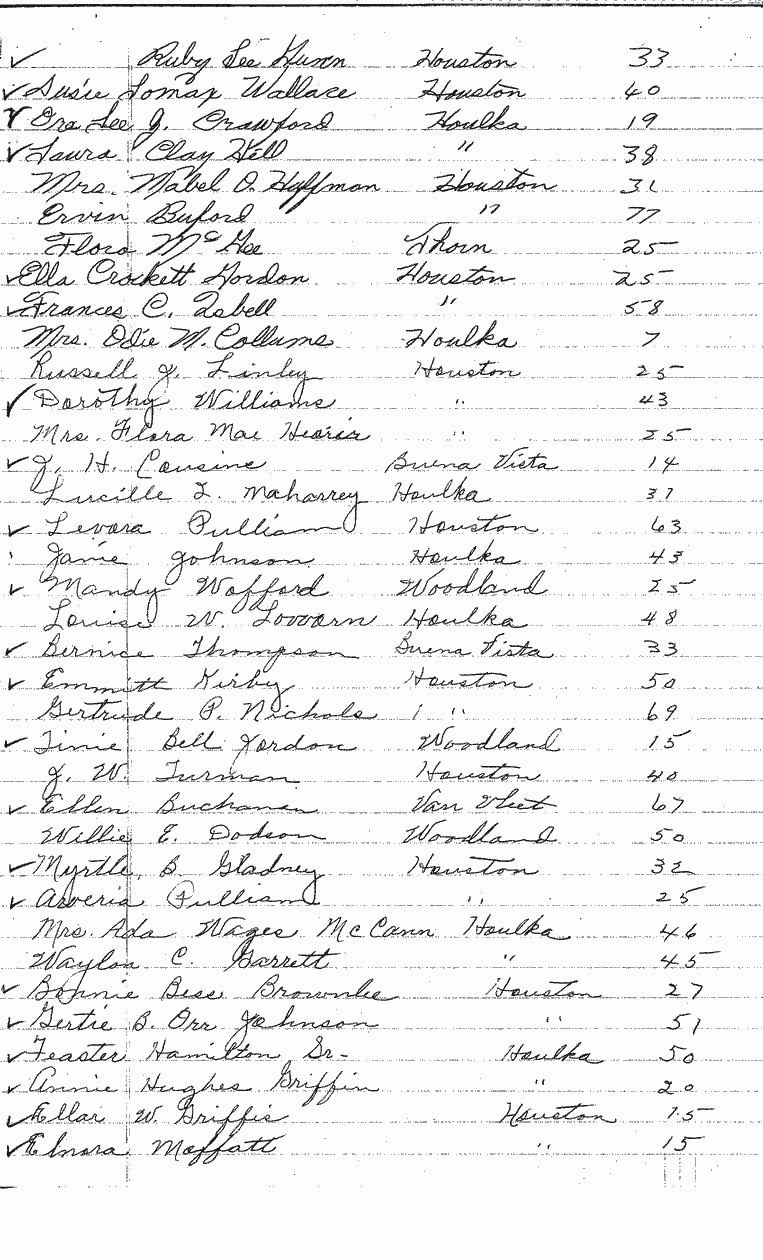 ✓ Ruby Lee Gunn Houston 33
✓ Susie Lomax Wallace Houston 40
✓ Ora Lee J. Crawford Houlka 19
✓ Laura Clay Hill " 38
Mrs. Mabel O. Huffman Houston 31
Ervin Buford " 77
Flora McGee Thorn 25
✓ Ella Crockett Gordon Houston 25
✓ Frances C. Isbell " 58
Mrs. Odie M. Collums Houlka 7
Russell J. Linley Houston 25
✓ Dorothy Williams " 43
Mrs. Flora Mae " 25
✓ J. H. Cousins Buena Vista 14
Lucille L. Maharrey Houlka 37
✓ Levora Pulliam Houston 63
Janie Johnson Houlka 43
✓ Mandy Wofford Woodland 25
Louise W. Lovvorn Houlka 48
✓ Bernice Thompson Buena Vista 33
✓ Emmitt Kirby Houston 50
Gertrude P. Nichols " 69
✓ Tinie Bell Jordon Woodland 15
J. W. Turman Houston 40
✓ Ellen Buchanan Van Vleet 67
Willie E. Dodson Woodland 50
✓ Myrtle B. Gladney Houston 32
✓ Arveria Pulliam " 25
Mrs. Ada Wages McCann Houlka 46
Waylon C. Garrett " 45
✓ Bonnie Bess Brownlee Houston 27
✓ Gertie B. Orr Johnson " 51
✓ Feaster Hamilton Sr. Houlka 50
✓ Annie Hughes Griffin " 20
✓ Ellar W. Griffis Houston 15
✓ Elnora Moffatt " 15